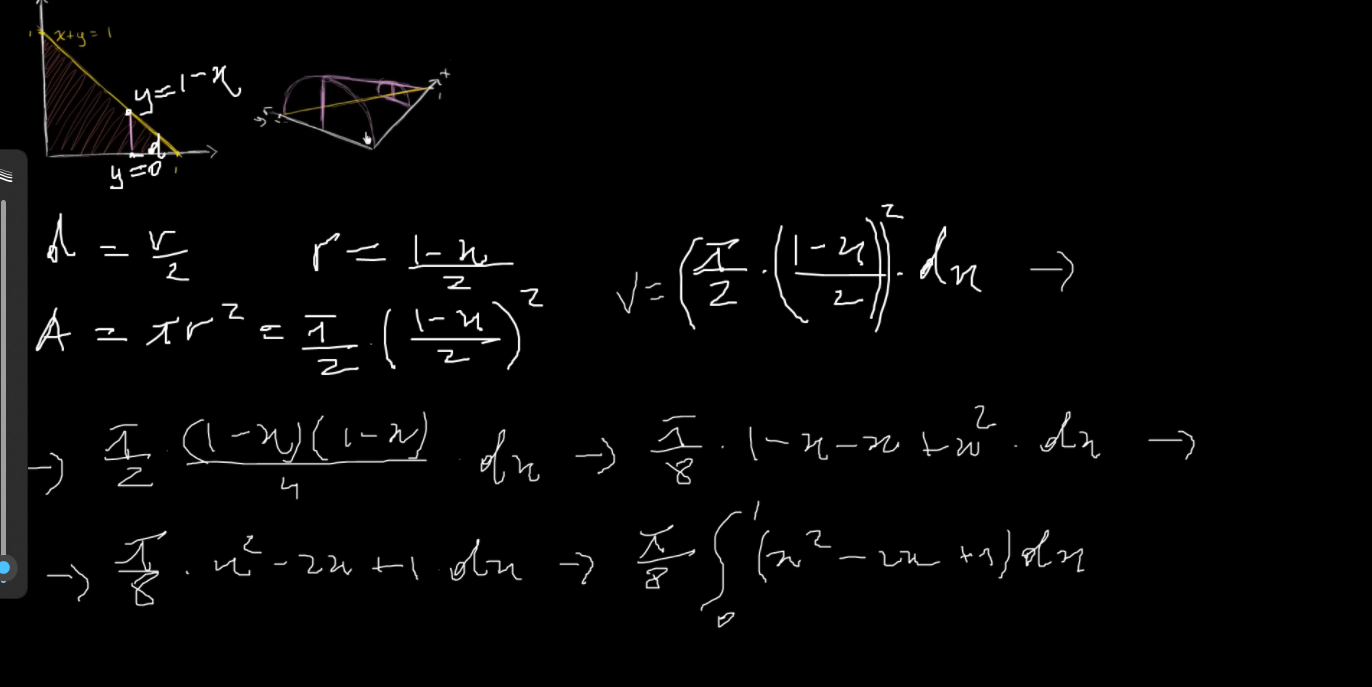 1 x+y=1
y=1-x
y=0
d
1
x
1
d = r/2 r = (1-x)/2 V = (π/2 · ((1-x)/2)² · dx →
A = πr² = π/2 · ((1-x)/2)²
→ π/2 · (1-x)(1-x)/4 · dx → π/8 · 1-x-x+x² · dx →
→ π/8 · x²-2x+1 · dx → π/8 ∫₀¹ (x²-2x+1)dx